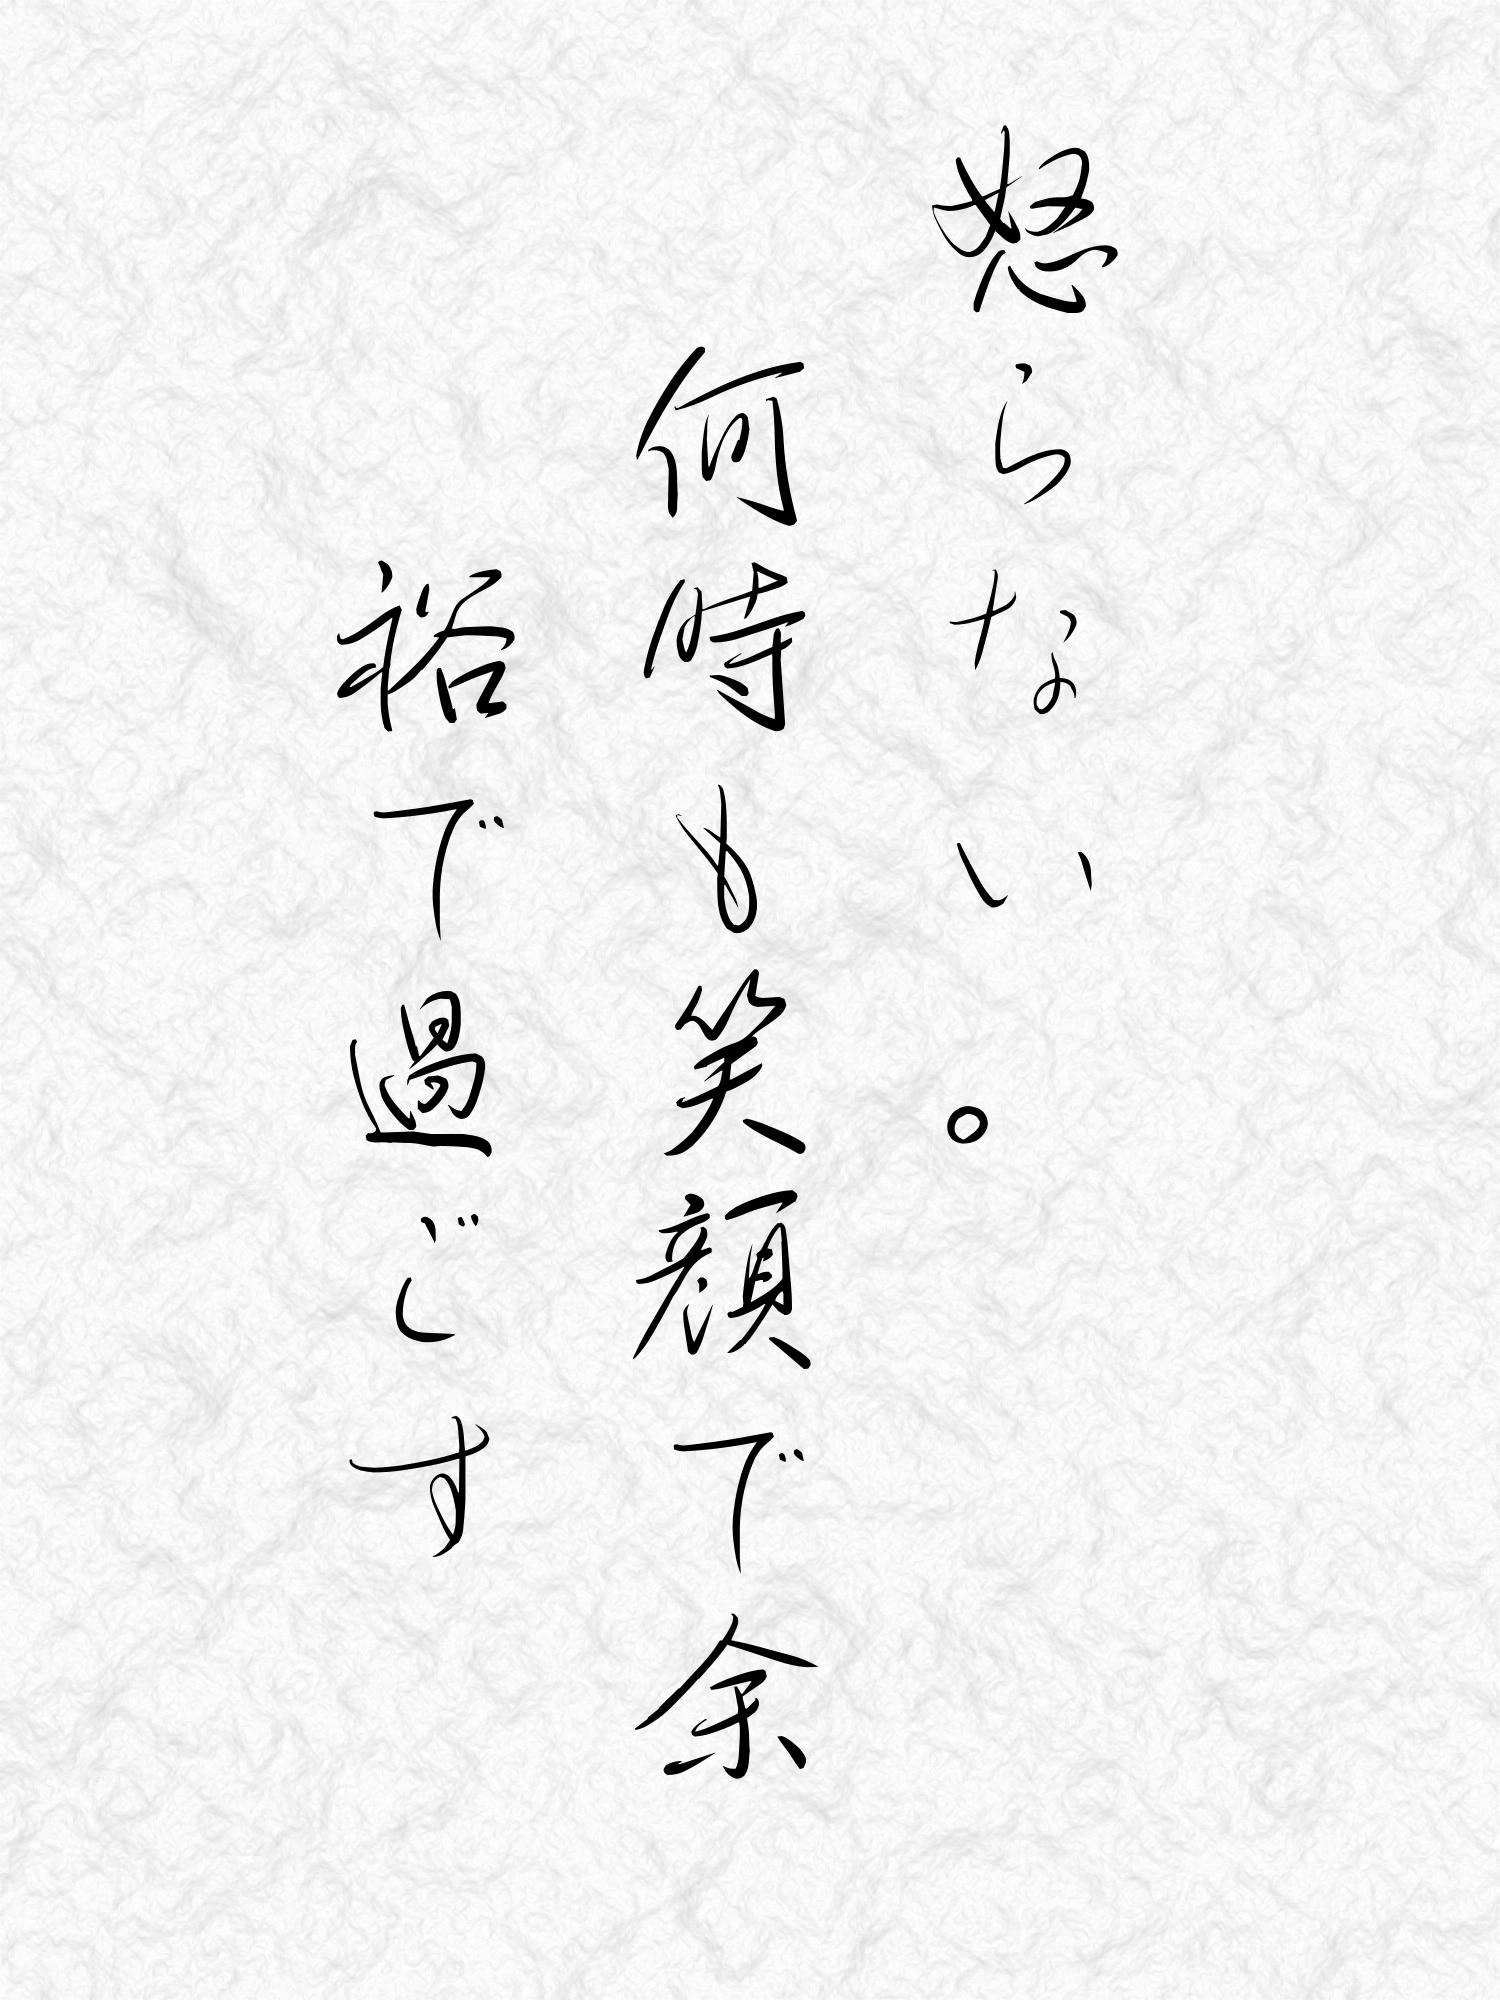 怒らない。
何時も笑顔で余
裕で過ごす